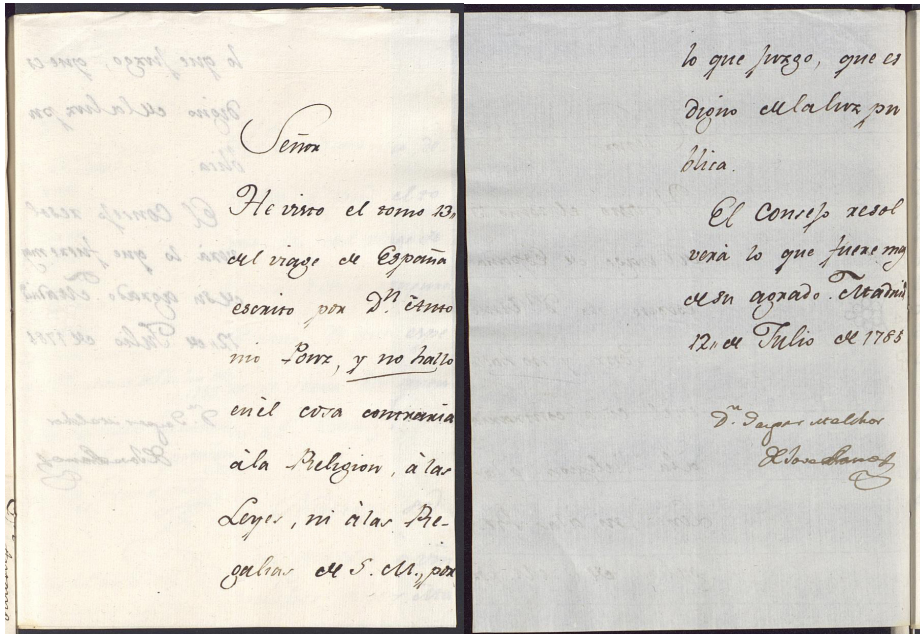 Señor
He visto el tomo 13,,
del viage de España
escrito por D.n Anto
nio Ponz, y no hallo
en èl cosa contraria
à la Religion, à las
Leyes, ni à las Re-
galias de S. M., por
lo que juzgo, que es
digno de la luz pu
blica.
El Consejo resol
verà lo que fuere mas
de su agrado. Madrid
12,, de Julio de 1785
D.n Gaspar Melchor
de Jovellanos